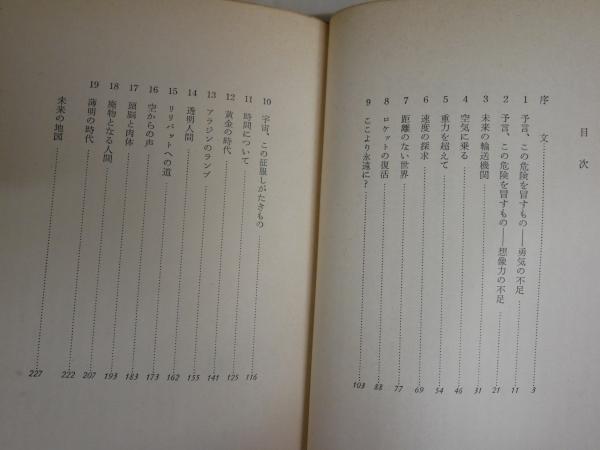 目次
序文 3
1 予言、この危険を冒すもの——勇気の不足 11
2 予言、この危険を冒すもの——想像力の不足 21
3 未来の輸送機関 31
4 空気に乗る 46
5 重力を超えて 54
6 速度の探求 69
7 距離のない世界 77
8 ロケットの復活 88
9 ここより永遠に? 103
10 宇宙、この征服しがたきもの 116
11 時間について 125
12 黄金の時代 141
13 アラジンのランプ 155
14 透明人間 162
15 リリパットへの道 173
16 空からの声 183
17 頭脳と肉体 193
18 廃物となる人間 207
19 薄明の時代 222
未来の地図 227